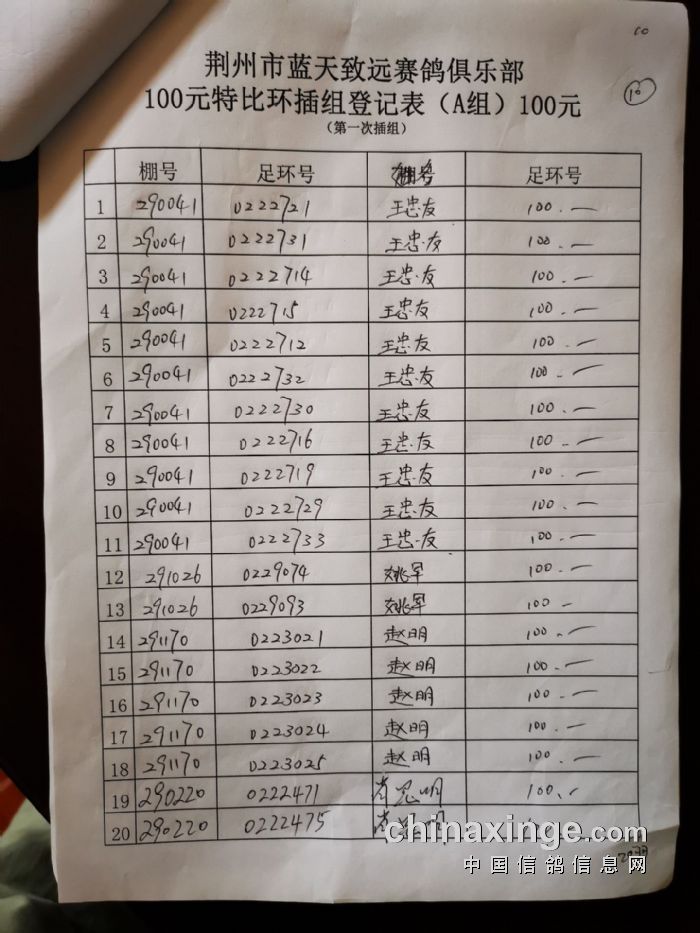 10
荆州市蓝天致远赛鸽俱乐部
100元特比环插组登记表（A组）100元
（第一次插组）
棚号 足环号 足环号
1 290041 0222721 王忠友 100.—
2 290041 0222731 王忠友 100.—
3 290041 0222714 王忠友 100.—
4 290041 0222715 王忠友 100.—
5 290041 0222712 王忠友 100.—
6 290041 0222732 王忠友 100.—
7 290041 0222730 王忠友 100.—
8 290041 0222716 王忠友 100.—
9 290041 0222719 王忠友 100.—
10 290041 0222729 王忠友 100.—
11 290041 0222733 王忠友 100.—
12 291026 0229074 姚军 100.—
13 291026 0229093 姚军 100 —
14 291170 0223021 赵明 100.—
15 291170 0223022 赵明 100.—
16 291170 0223023 赵明 100.—
17 291170 0223024 赵明 100.—
18 291170 0223025 赵明 100.—
19 290220 0222471 明 100.—
20 290220 0222475
chinaxinge.com
中国信鸽信息网